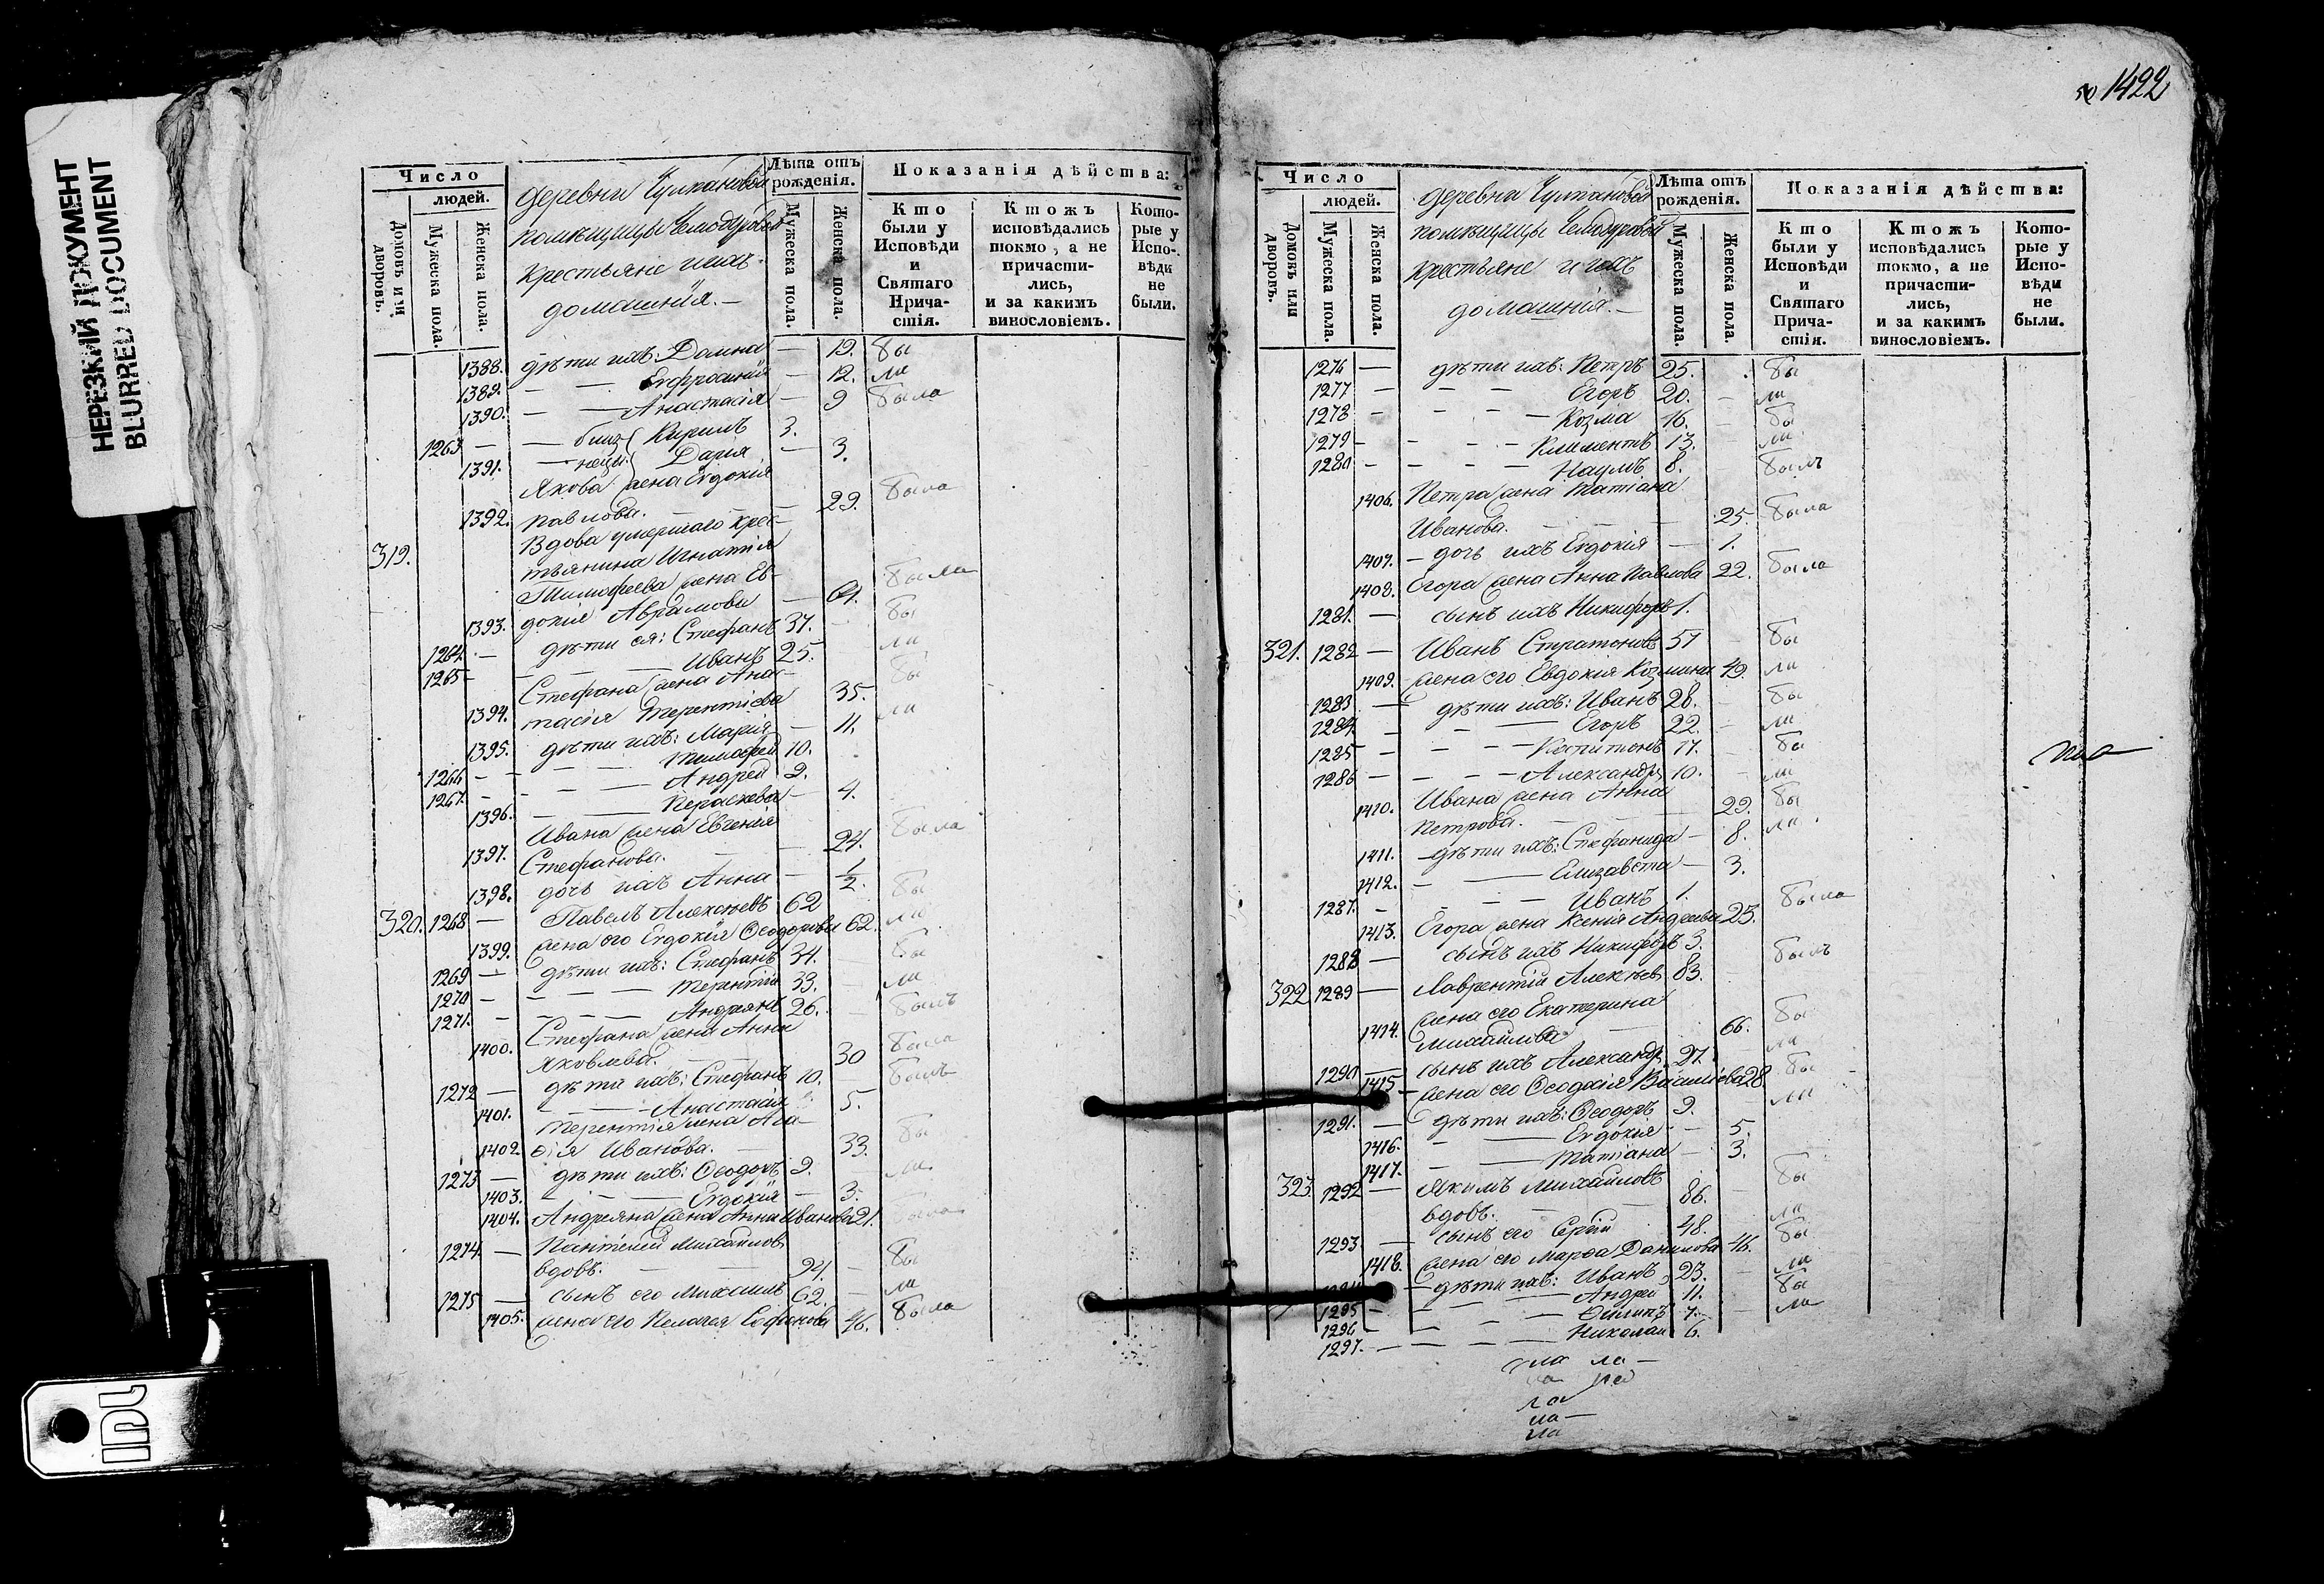 НЕРЕЗКИЙ ДОКУМЕНТ
BLURRED DOCUMENT
Число
людей.
Домовъ или дворовъ.
Мужеска пола.
Женска пола.
деревни
помѣщицы
крестьяне и ихъ
домашнія.
Лѣта отъ рожденія.
Мужеска пола.
Женска пола.
Показанія дѣйства:
Кто были у Исповѣди и Святаго Прича-стія.
Ктожъ исповѣдались токмо, а не причасти-лись, и за какимъ винословіемъ.
Кото-рые у Испо-вѣди не были.
1388. дѣти ихъ: Домна — 19. бы
1389. — — Евфросинія — 12. ли
1390. — — Анастасія — 9 была
1263 — — близ- Кирилъ 3.
1391. — нецы: Дарія — 3.
Якова жена Евдокія
1392. Павлова. — — 29. была
319. Вдова умершаго крес-
тьянина Игнатія
Тимофеева жена Ев-
1393. докія Аврамова — 61. была
1264. — дѣти ея: Стефанъ 37. — бы
1265 — — — Иванъ 25. ли
Стефана жена Ана-
1394. тасія Терентіева 35. бы
1395. дѣти ихъ: Марія — 11. ли
1266 — — — Тимофей 10.
1267. — — — Андрей 9.
1396. — — Параскева — 4.
Ивана жена Евгенія
1397. Стефанова. — — 24. была
1398. дочь ихъ Анна — 1/2.
320. 1268 — Павелъ Алексѣевъ 62 бы
1399. жена его Евдокія Ѳеодорова 62. ли
1269 — дѣти ихъ: Стефанъ 34. — бы
1270 — — — Терентій 33. — ли
1271. — — — Андреянъ 26. — былъ
Стефана жена Анна
1400. Яковлева. — — 30 была
1272 — дѣти ихъ: Стефанъ 10. — былъ
1401. — — Анастасія 5.
Терентія жена Ага-
1402. ѳія Иванова. — 33. бы
1273 — дѣти ихъ: Ѳеодоръ 9. ли
1403. — — Евдокія — 3.
1404. Андреяна жена Анна Иванова 21. была
1274 — Пантелей Михайловъ
вдовъ. — — — бы
1275 — сынъ его Михаилъ 62. — ли
1405. жена его Пелагея 46. была
1422
Число
людей.
Домовъ или дворовъ.
Мужеска пола.
Женска пола.
деревни
помѣщицы
крестьяне и ихъ
домашнія.
Лѣта отъ рожденія.
Мужеска пола.
Женска пола.
Показанія дѣйства:
Кто были у Исповѣди и Святаго Прича-стія.
Ктожъ исповѣдались токмо, а не причасти-лись, и за какимъ винословіемъ.
Кото-рые у Испо-вѣди не были.
1276 — дѣти ихъ: Петръ 25. бы
1277 — — Егоръ 20. — ли
1278 — — — Козма 16. — бы
1279 — — — Климентъ 13. — ли
1280 — — — Наумъ 8. былъ
1406. Петра жена Татіана
Иванова. — — 25. была
1407. — дочь ихъ Евдокія — 1.
1408. Егора жена Анна Павлова 22. была
1281. — сынъ ихъ Никифоръ 1.
321. 1282 — Иванъ Стратоновъ 51 — бы
1409. жена его Евдокія Козмина 49. ли
1283 — дѣти ихъ: Иванъ 28. — бы
1284 — — Егоръ 22. — ли
1285 — — — Капитонъ 17. — бы
1286 — — — Александръ 10. — ли
1410. Ивана жена Анна
Петрова. — — 29. бы
1411. — дѣти ихъ: Стефанида — 8. ли
1412. — — Елизавета — 3.
1287. — — — Иванъ 1.
1413. Егора жена Ксенія Андреева 23. была
1288 — сынъ ихъ Никифоръ 3.
322. 1289 — Лаврентій Алексѣевъ 83. былъ
жена его Екатерина
1414. Михайлова — 66. бы
1290 — сынъ ихъ Александръ 27. — ли
1415 — жена его Ѳеодосія Васильева 28 бы
1291. — дѣти ихъ: Ѳеодоръ 9. ли
1416. — — Евдокія — 5.
1417. — — Татіана — 3.
323 1292 — Якимъ Михайловъ
вдовъ. — — 86. — бы
1293 — сынъ его Сергій 48. ли
1418. жена его Марѳа Данилова 46. бы
— дѣти ихъ: Иванъ 23. — ли
1295 — — — Андрей 11. бы
1296 — — — Филипъ 7. — ли
1297. — — — Николай 6.